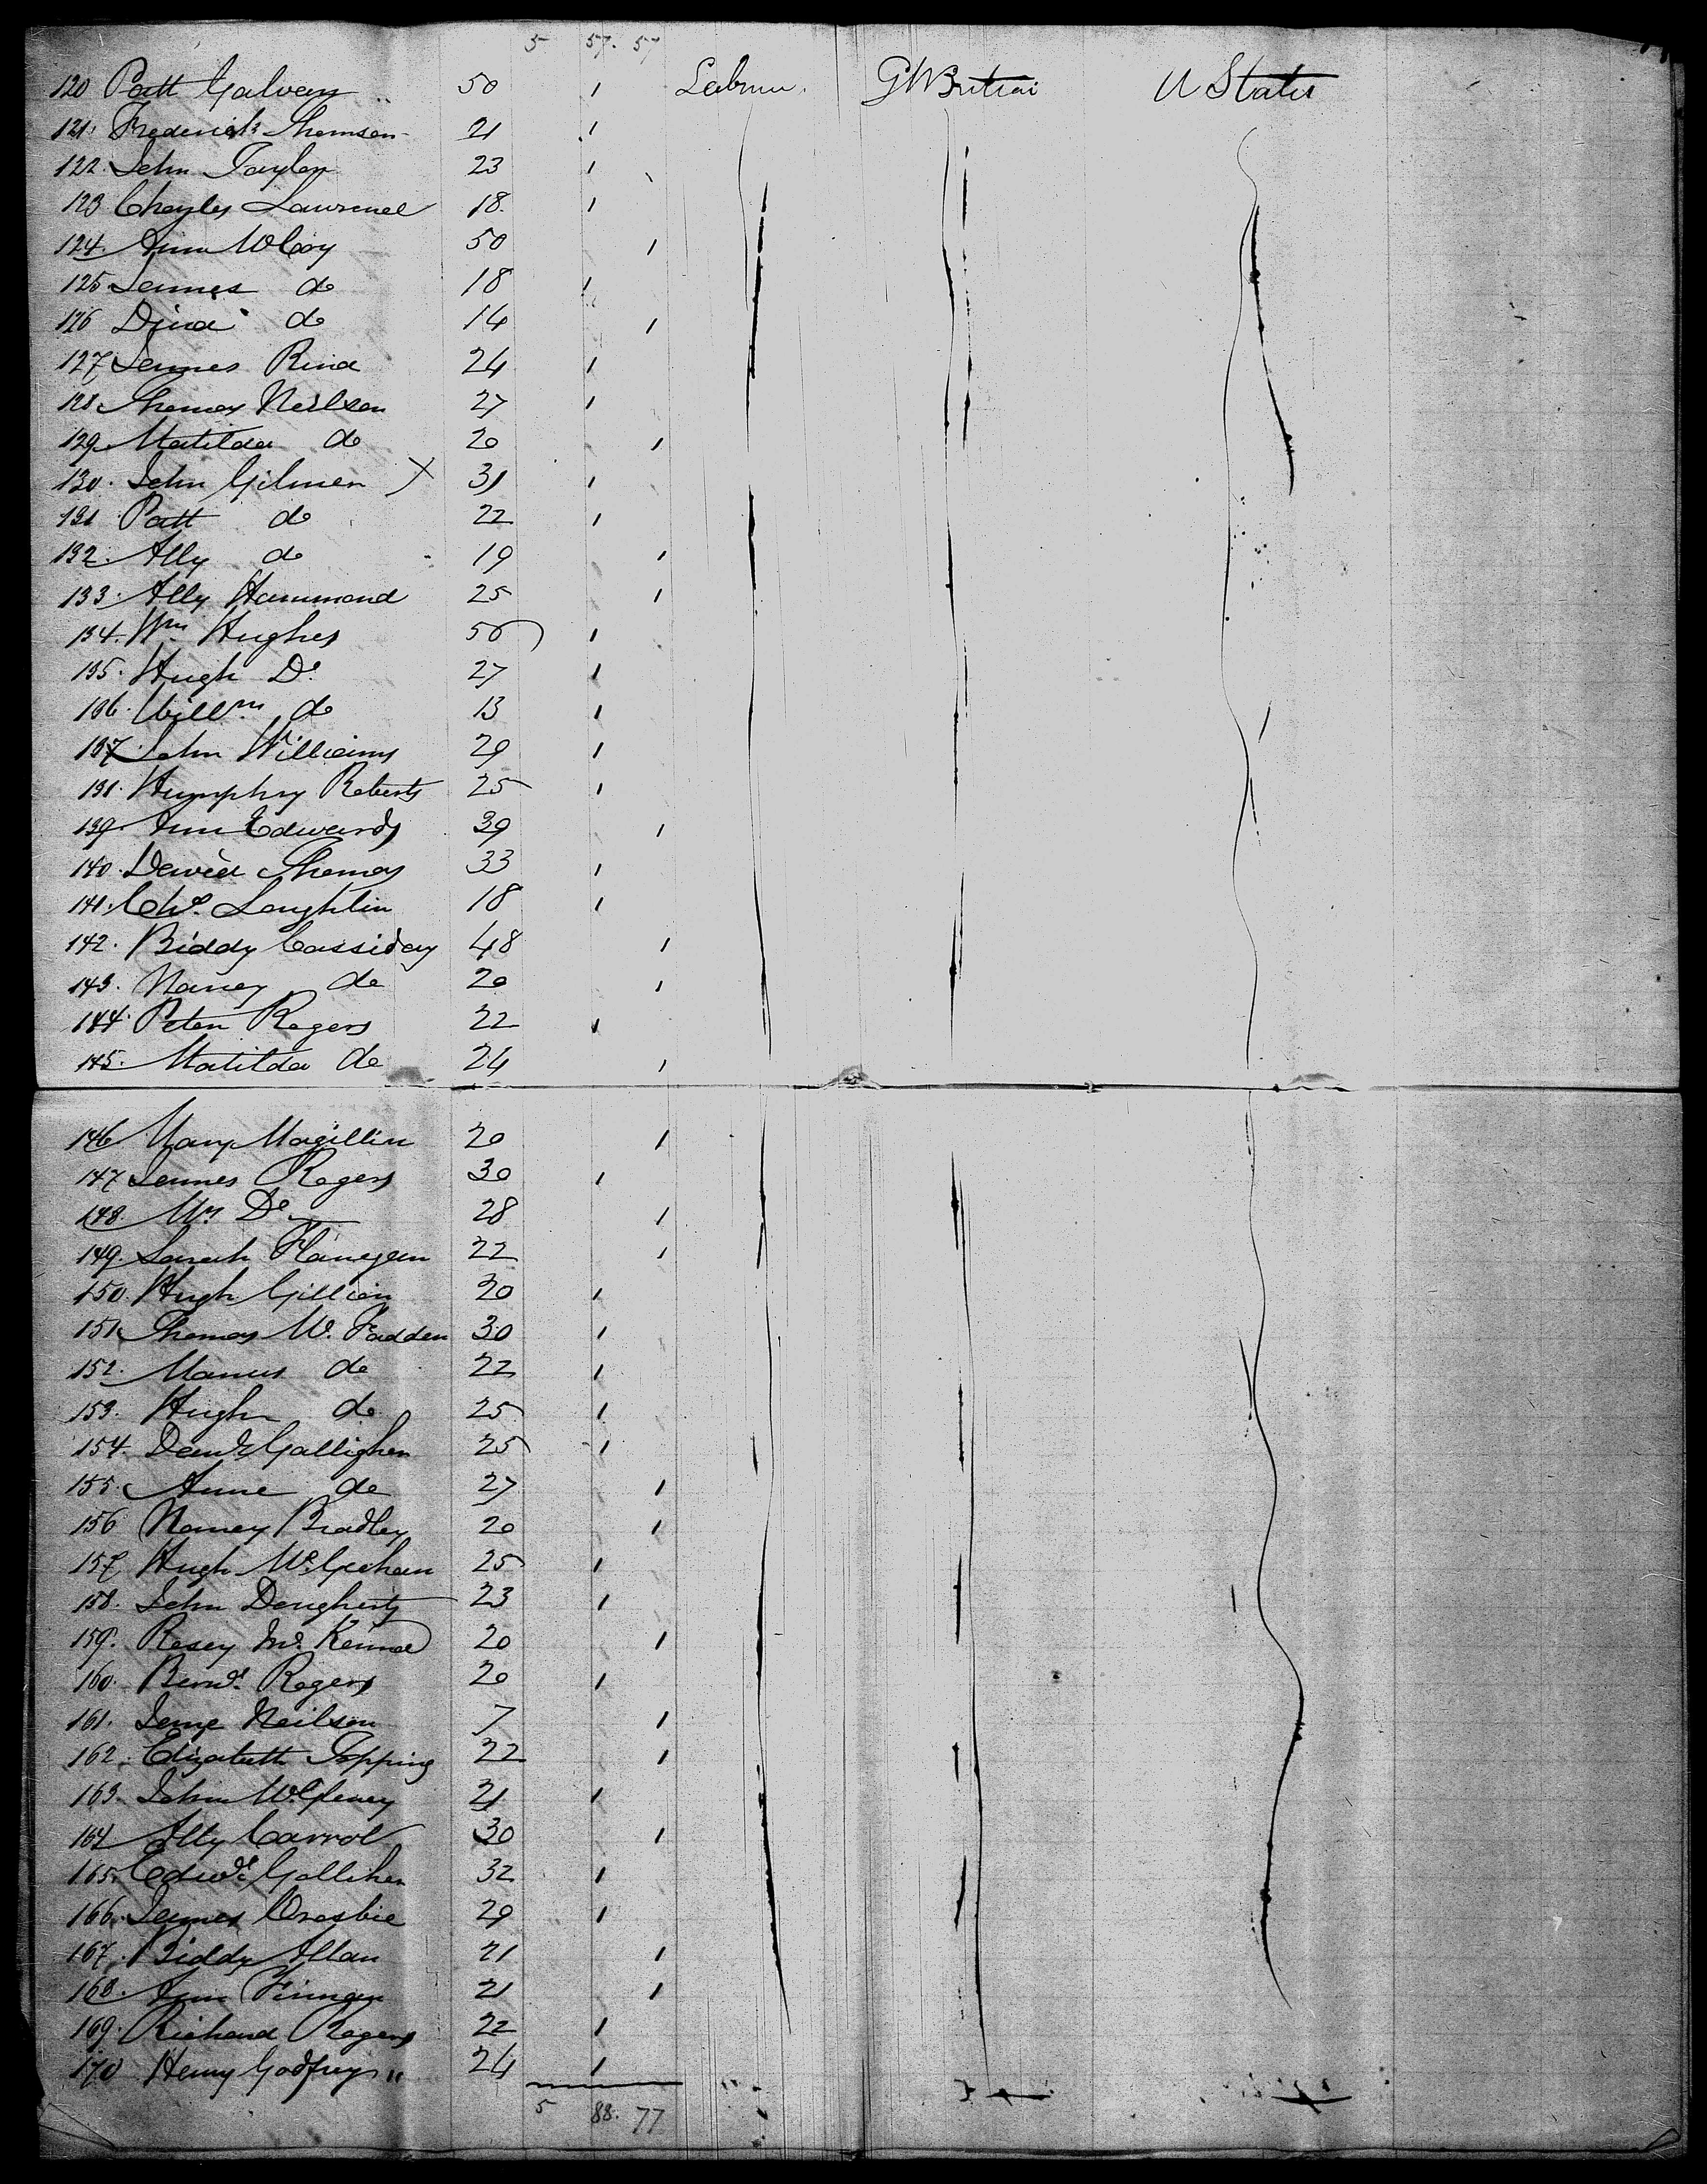 5 57. 57
120 Patt Galvan 50 1 Labour. Gt Britain U States
121. Frederick Thomson 21 1
122. John Taylor 23 1
123 Charles Lawrence 18. 1
124. Ann McCoy 50 1
125 James do 18 1
126 Dina do 14 1
127 James Rind 24 1
128 Thomas Neilson 27 1
129. Matilda do 20 1
130. John Gilmer X 31 1
131 Patt do 22 1
132. Ally do 19 1
133. Ally Hammond 25 1
134. Wm Hughes 50 1
135. Hugh Do 27 1
136. Willm do 13 1
137. John Williams 29 1
138. Humphry Roberts 25 1
139. Ann Edwards 39 1
140. David Thomas 33 1
141. Chs. Loughlin 18 1
142. Biddy Cassiday 48 1
143. Nancy do 20 1
144. Peter Rogers 22 1
145. Matilda do 24 1
146 Mary Magillin 20 1
147 James Rogers 30 1
148. Mrs Do 28 1
149. Sarah Flanegan 22 1
150. Hugh Gillian 20 1
151 Thomas Mc. Fadden 30 1
152. Manus do 22 1
153. Hugh do 25 1
154. Danl Gallighen 25 1
155. Anne do 27 1
156 Nancy Bradley 20 1
157 Hugh McGechan 25 1
158. John Dougherty 23 1
159. Rosey Mc. Kenna 20 1
160. Bernd. Rogers 20 1
161. Jane Neilson 7 1
162. Elizabeth Topping 22 1
163. John McGeney 21 1
164 Ally Carrol 30 1
165. Edwd. Gallihen 32 1
166. James Crosbie 29 1
167. Biddy Allan 21 1
168. Ann Finnegan 21 1
169. Richard Rogers 22 1
170 Henry Godfrey " 24 1
5 88. 77